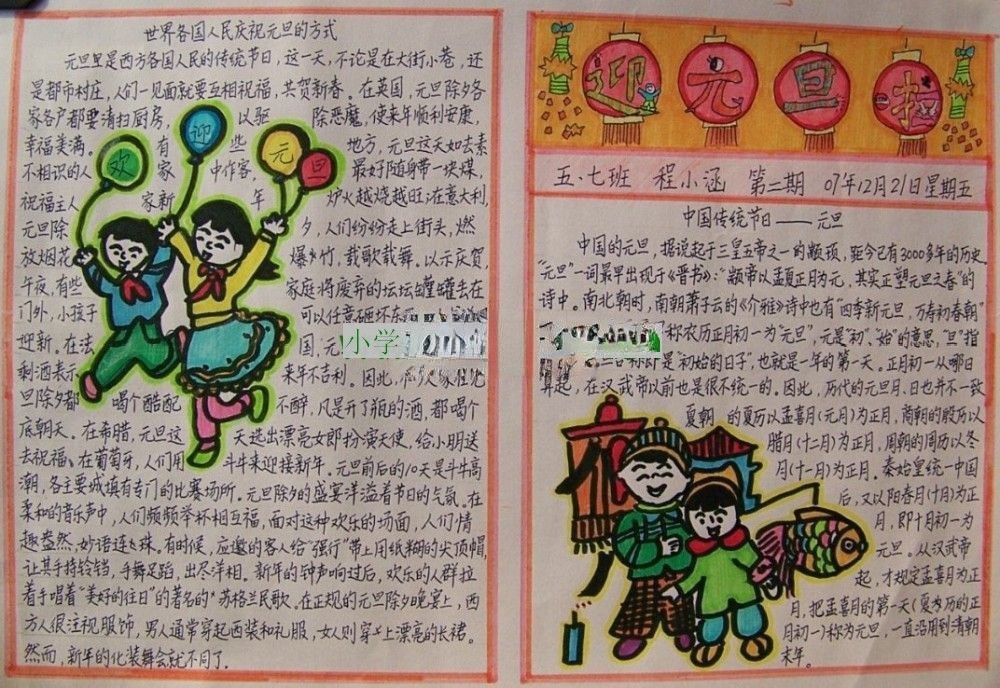 世界各国人民庆祝元旦的方式
元旦是西方各国人民的传统节日，这一天，不论是在大街小巷，还
是都市村庄，人们一见面就要互相祝福，共贺新春。在英国，元旦除夕各
家各户都要清扫厨房，以驱除恶魔，使来年顺利安康，
幸福美满。有些地方，元旦这天如去素
不相识的人家中作客，最好随身带一块煤，
祝福主人家新年炉火越烧越旺；在意大利，
元旦除夕，人们纷纷走上街头，燃
放烟花爆竹，载歌载舞。以示庆贺
午夜，有些家庭将废弃的坛坛罐罐丢在
门外，小孩子可以任意砸坏
迎新。在法国，元
剩酒表示来年不吉利。因此，
旦除夕都喝个酩酊不醉，凡是开了瓶的酒，都喝个
底朝天。在希腊，元旦这天选出漂亮女郎扮演天使，给小朋送
去祝福。在葡萄牙，人们用斗牛来迎接新年。元旦前后的10天是斗牛高
潮，各主要城填有专门的比赛场所。元旦除夕的盛宴洋溢着节日的气氛。在
柔和的音乐声中，人们频频举杯相互福，面对这种欢乐的场面，人们情
趣盎然，妙语连珠。有时候，应邀的客人给“强行”带上用纸糊的尖顶帽，
让其手持铃铛，手舞足蹈，出尽洋相。新年的钟声响过后，欢乐的人群拉
着手唱着“美好的往日”的著名的苏格兰民歌。在正规的元旦除夕晚宴上，西
方人很注视服饰，男人通常穿起西装和礼服，女人则穿上漂亮的长裙。
然而，新年的化装舞会就不同了。
欢迎元旦
小学
迎元旦
五·七班 程小涵 第二期 07年12月21日星期五
中国传统节日——元旦
中国的元旦，据说起于三皇五帝之一的颛顼，距今已有3000多年的历史
“元旦”一词最早出现于《晋书》：“颛帝以孟夏正月为元，其实正塑元旦之春”的
诗中。南北朝时，南朝萧子云的《介雅》诗中也有“四季新元旦，万寿初春朝”
称农历正月初一为“元旦”，元是“初”、“始”的意思，“旦”指
是“初始的日子”，也就是一年的第一天。正月初一从哪日
算起，在汉武帝以前也是很不统一的。因此，历代的元旦月、日也并不一致
夏朝，的夏历以孟喜月（元月）为正月，商朝的殷历以
腊月（十二月）为正月，周朝的周历以冬
月（十一月）为正月。秦始皇统一中国
后，又以阳春月（十月）为正
月，即十月初一为
元旦。从汉武帝
起，才规定孟喜月为正
月，把孟喜月的第一天（夏历的正
月初一）称为元旦，一直沿用到清朝
末年。